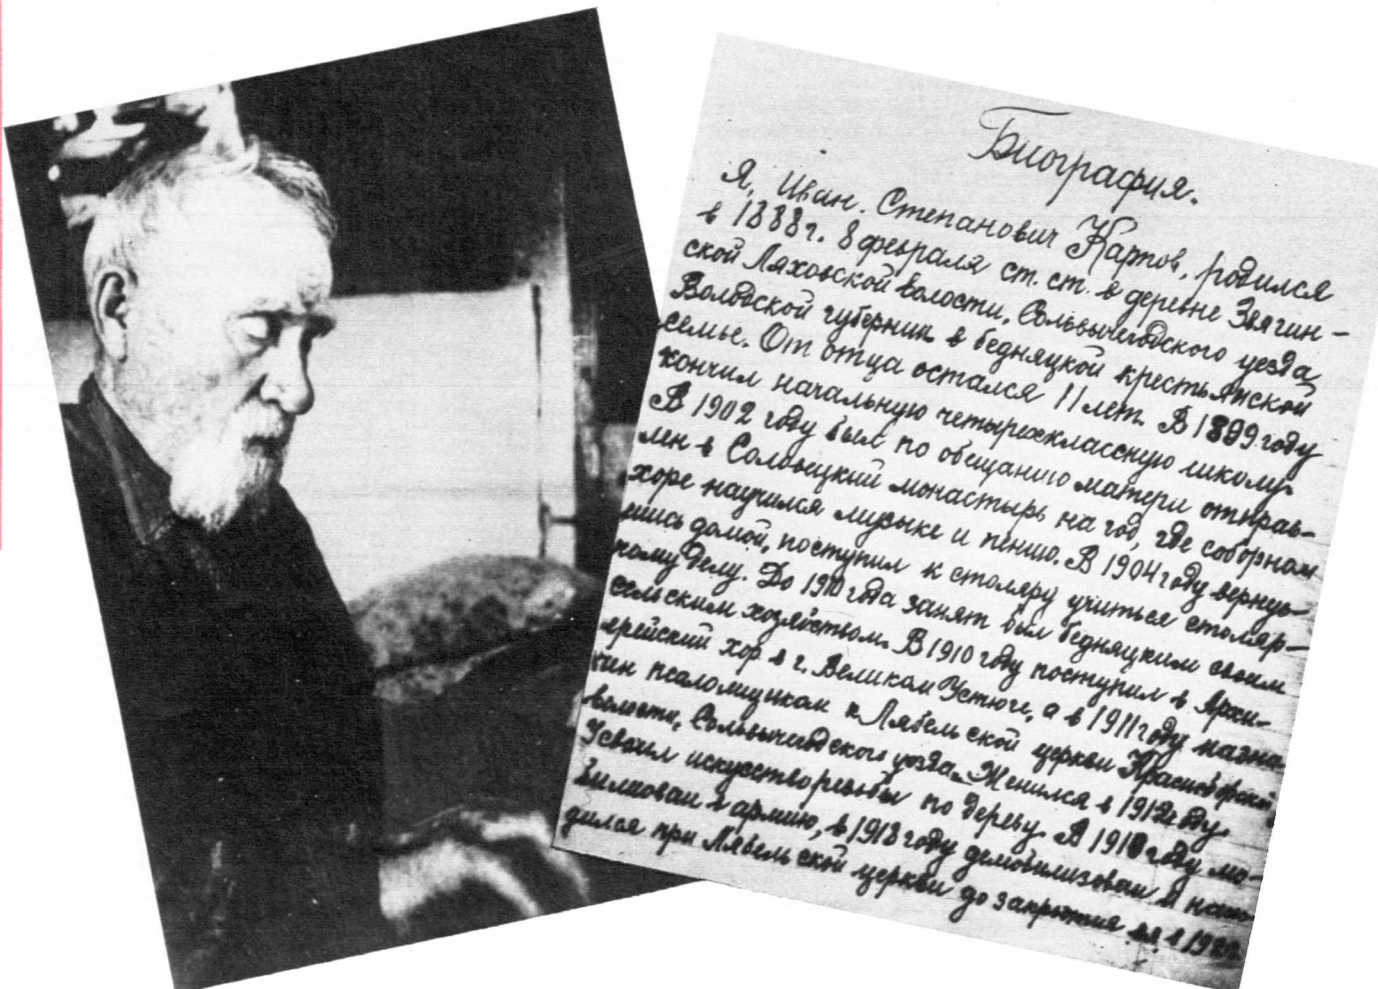 Биография.
Я, Иван Степанович Карпов, родился
в 1888 г. 8 февраля ст. ст. в деревне Звягин-
ской Ляховской волости, Сольвычегодского уезда
Вологодской губернии в бедняцкой крестьянской
семье. От отца остался 11 лет. В 1899 году
кончил начальную четырехклассную школу.
В 1902 году был по обещанию матери отправ-
лен в Соловецкий монастырь на год, где соборном
хоре научился музыке и пению. В 1904 году вернув-
шись домой, поступил к столяру учиться столяр-
ному делу. До 1910 года занят был бедняцким своим
сельским хозяйством. В 1910 году поступил в Архи-
ерейский хор в г. Великом Устюге, а в 1911 году назна
чен псаломщиком к Лябельской церкви Красноборской
волости, Сольвычегодского уезда. Женился в 1912 году.
Усвоил искусство резьбы по дереву. В году мо-
билизован в армию, в 1918 году демобилизован и нахо
дился при Лябельской церкви до закрытия